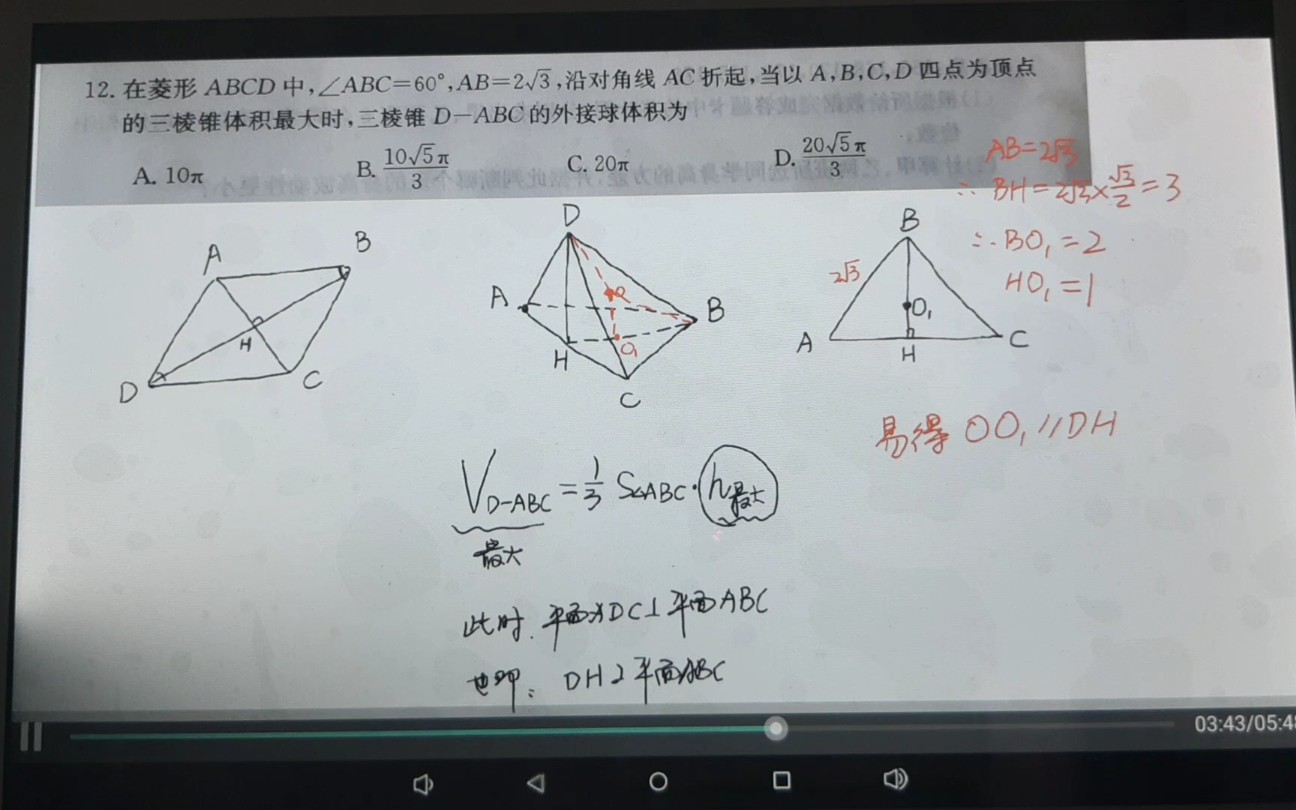 12. 在菱形 ABCD 中,∠ABC=60°,AB=2√3,沿对角线 AC 折起,当以 A,B,C,D 四点为顶点
的三棱锥体积最大时,三棱锥 D-ABC 的外接球体积为
A. 10π B. 10√5π/3 C. 20π D. 20√5π/3
AB=2√3
∴ BH=2√3×√3/2=3
∴ BO₁=2
HO₁=1
A B
H
D C
D
A
O
B
H O₁
C
B
2√3
O₁
A H C
易得 OO₁//DH
V D-ABC = 1/3 S△ABC·h最大
最大
此时, 平面ADC⊥平面ABC
也即: DH⊥平面ABC
03:43/05:48